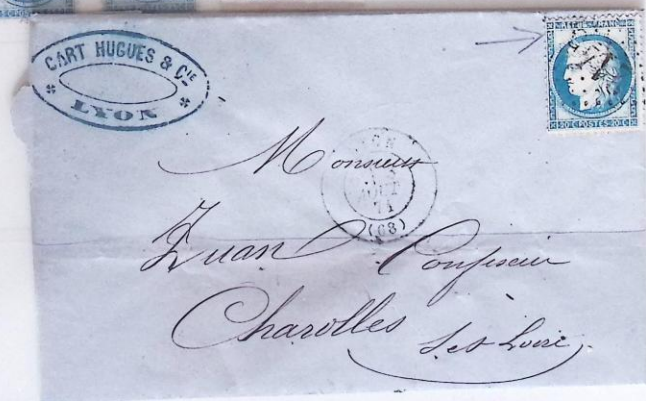 CART HUGUES & CIE
LYON
REPUB. FRANC.
20 C. POSTES 20 C.
LYON
AOUT
71
(68)
Monsieur
Zuan Confiseur
Charolles
S. et Loire